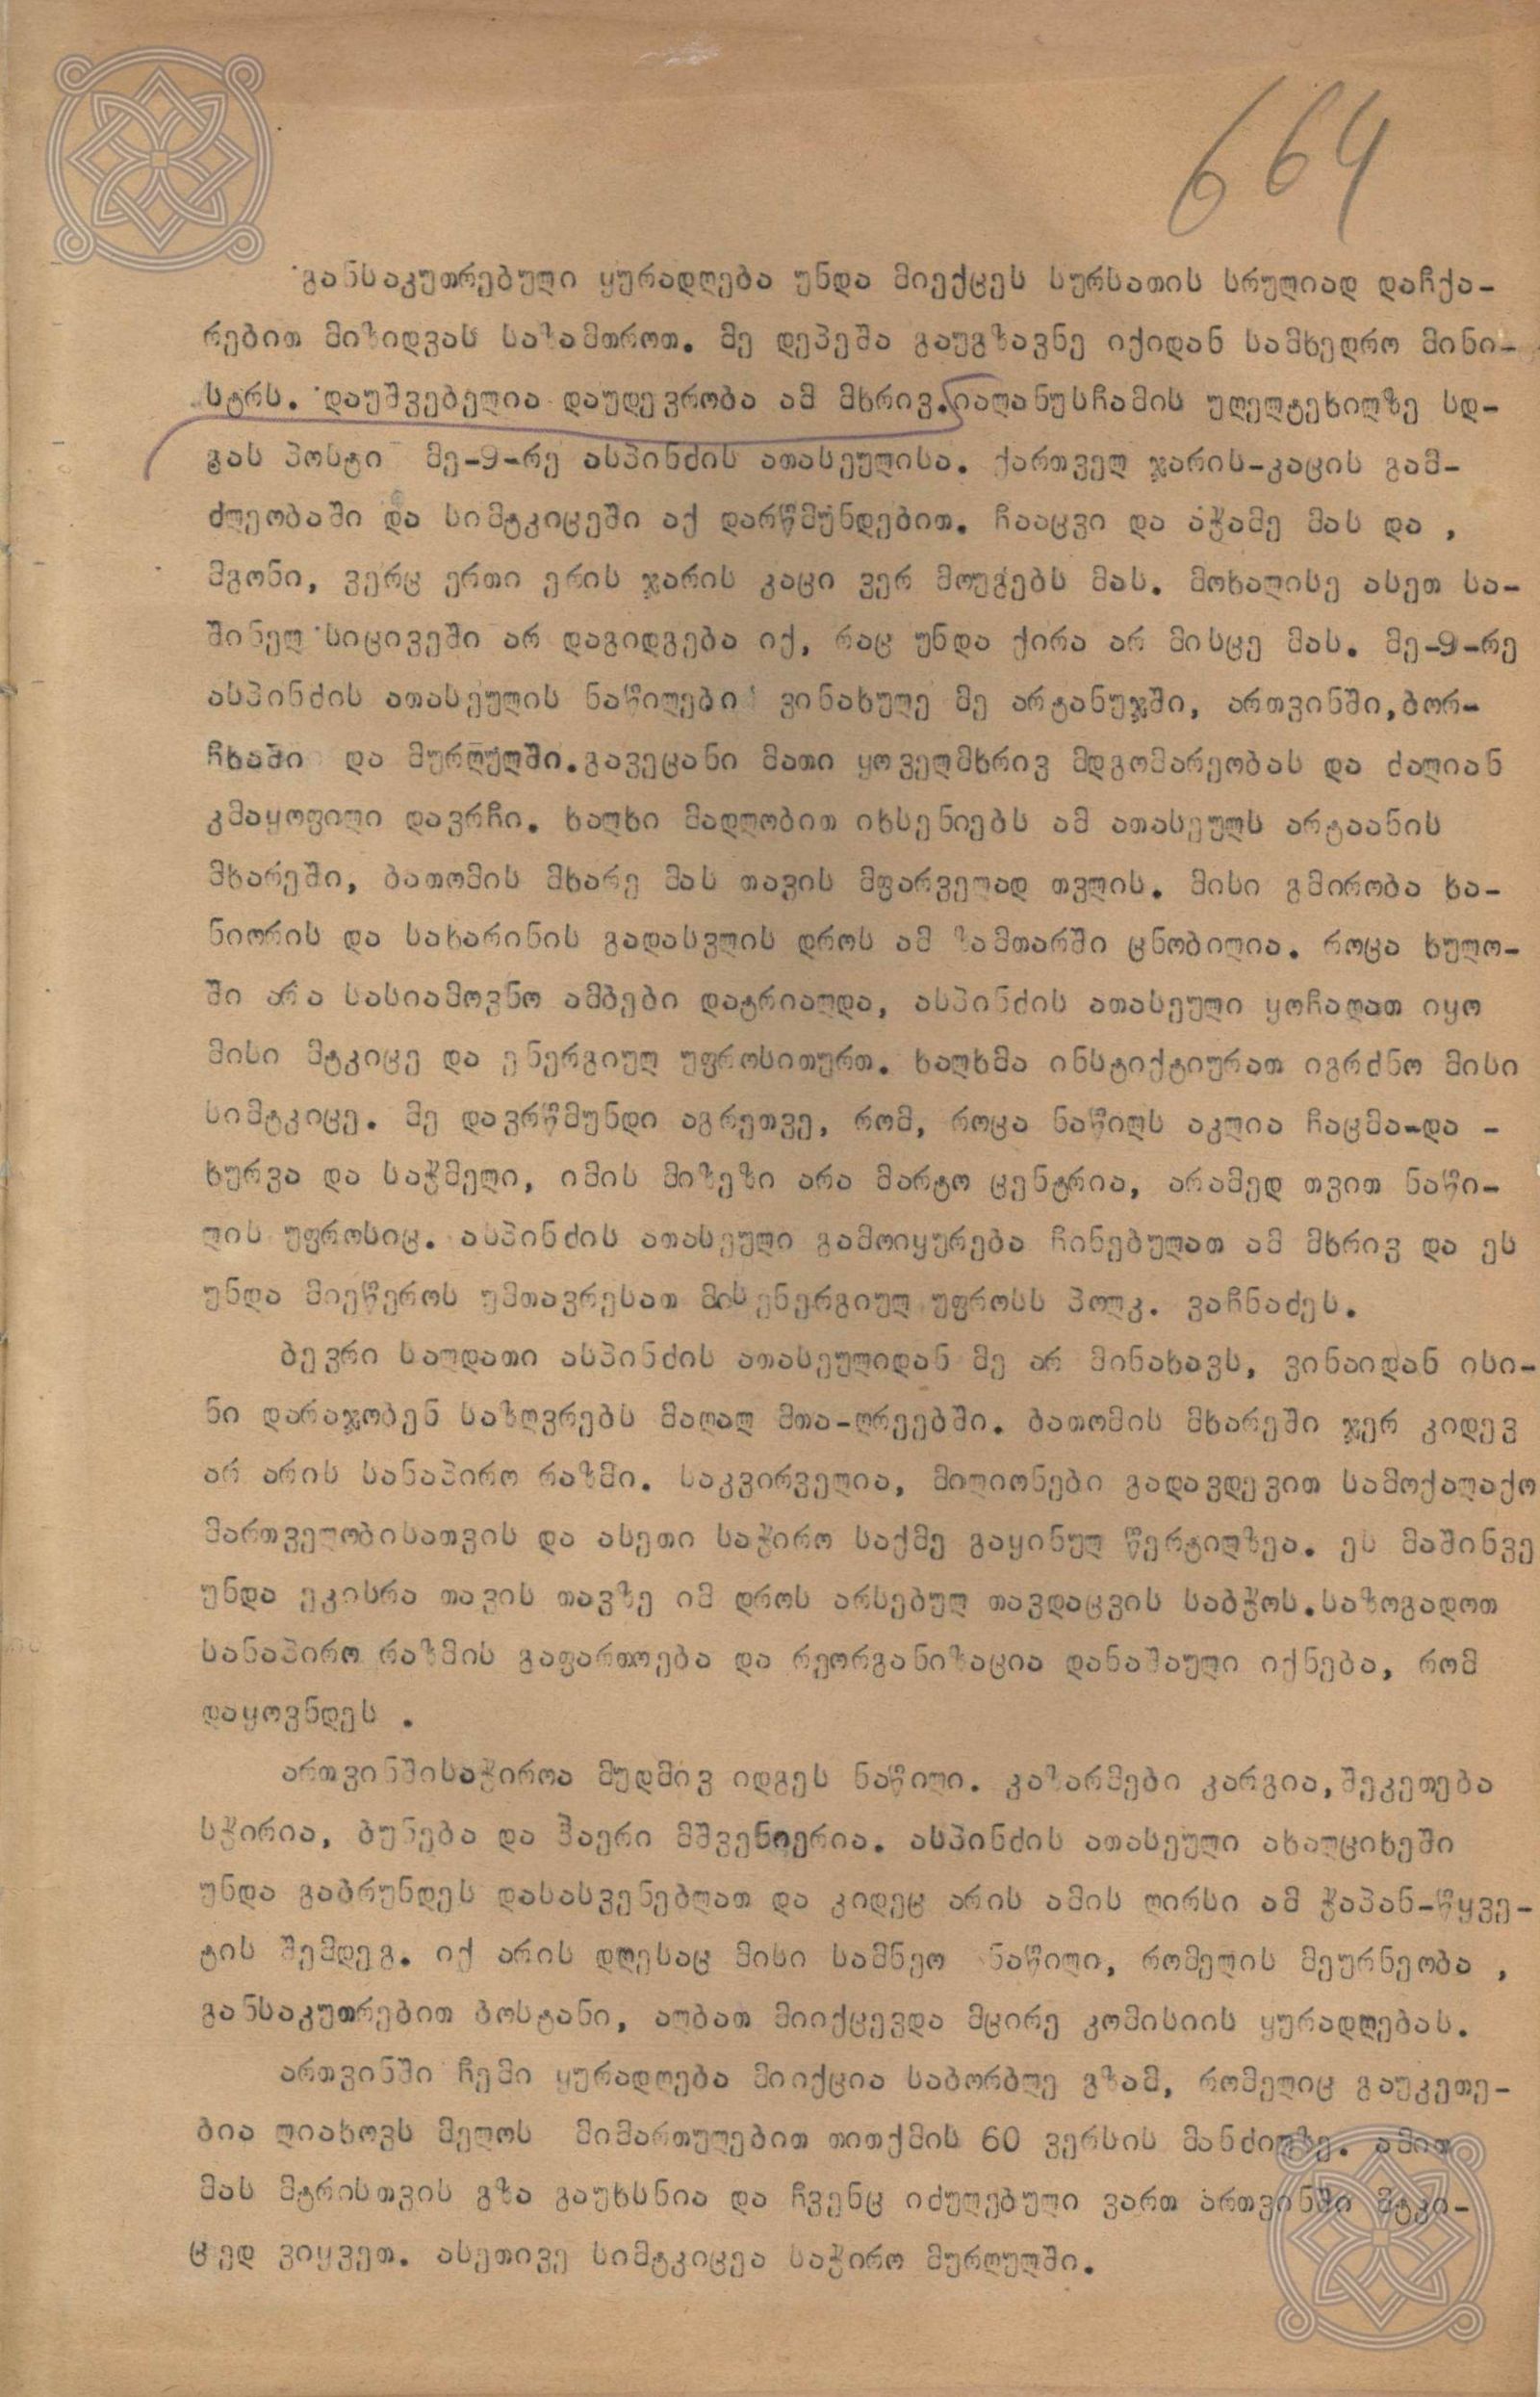 664
განსაკუთრებული ყურადღება უნდა მიექცეს სურსათის სრულიად დაჩქა-
რებით მიზიდვას საზამთროთ. მე დეპეშა გაუგზავნე იქიდან სამხედრო მინი-
სტრს. დაუშვებელია დაუდევრობა ამ მხრივ.იალანუსჩამის უღელტეხილზე სდ-
გას პოსტი მე-9-რე ასპინძის ათასეულისა. ქართველ ჯარის-კაცის გამ-
ძლეობაში და სიმტკიცეში აქ დარწმუნდებით. ჩააცვი და აჭამე მას და ,
მგონი, ვერც ერთი ერის ჯარის კაცი ვერ მოუგებს მას. მოხალისე ასეთ სა-
შინელ სიცივეში არ დაგიდგება იქ, რაც უნდა ქირა არ მისცე მას. მე-9-რე
ასპინძის ათასეულის ნაწილები ვინახულე მე არტანუჯში, ართვინში,ბორ-
ჩხაში და მურღულში.გავეცანი მათი ყოველმხრივ მდგომარეობას და ძალიან
კმაყოფილი დავრჩი. ხალხი მადლობით იხსენიებს ამ ათასეულს არტაანის
მხარეში, ბათომის მხარე მას თავის მფარველად თვლის. მისი გმირობა ხა-
ნიორის და სახარინის გადასვლის დროს ამ ზამთარში ცნობილია. როცა ხულო-
ში არა სასიამოვნო ამბები დატრიალდა, ასპინძის ათასეული ყოჩაღათ იყო
მისი მტკიცე და ენერგიულ უფროსითურთ. ხალხმა ინსტიქტიურათ იგრძნო მისი
სიმტკიცე. მე დავრწმუნდი აგრეთვე, რომ, როცა ნაწილს აკლია ჩაცმა-და -
ხურვა და საჭმელი, იმის მიზეზი არა მარტო ცენტრია, არამედ თვით ნაწი-
ლის უფროსიც. ასპინძის ათასეული გამოიყურება ჩინებულათ ამ მხრივ და ეს
უნდა მიეწეროს უმთავრესათ მის ენერგიულ უფროსს პოლკ. ვაჩნაძეს.
ბევრი სალდათი ასპინძის ათასეულიდან მე არ მინახავს, ვინაიდან ისი-
ნი დარაჯობენ საზღვრებს მაღალ მთა-ღრეებში. ბათომის მხარეში ჯერ კიდევ
არ არის სანაპირო რაზმი. საკვირველია, მილიონები გადავდევით სამოქალაქო
მართველობისათვის და ასეთი საჭირო საქმე გაყინულ წერტილზეა. ეს მაშინვე
უნდა ეკისრა თავის თავზე იმ დროს არსებულ თავდაცვის საბჭოს.საზოგადოთ
სანაპირო რაზმის გაფართოება და რეორგანიზაცია დანაშაული იქნება, რომ
დაყოვნდეს .
ართვინშისაჭიროა მუდმივ იდგეს ნაწილი. კაზარმები კარგია,შეკეთება
სჭირია, ბუნება და ჰაერი მშვენიერია. ასპინძის ათასეული ახალციხეში
უნდა გაბრუნდეს დასასვენებლათ და კიდეც არის ამის ღირსი ამ ჭაპან-წყვე-
ტის შემდეგ. იქ არის დღესაც მისი სამნეო ნაწილი, რომელის მეურნეობა ,
განსაკუთრებით ბოსტანი, ალბათ მიიქცევდა მცირე კომისიის ყურადღებას.
ართვინში ჩემი ყურადღება მიიქცია საბორბლე გზამ, რომელიც გაუკეთე-
ბია ლიახოვს მელოს მიმართულებით თითქმის 60 ვერსის მანძილზე. ამით
მას მტრისთვის გზა გაუხსნია და ჩვენც იძულებული ვართ ართვინში მტკი-
ცედ ვიყვეთ. ასეთივე სიმტკიცეა საჭირო მურღულში.